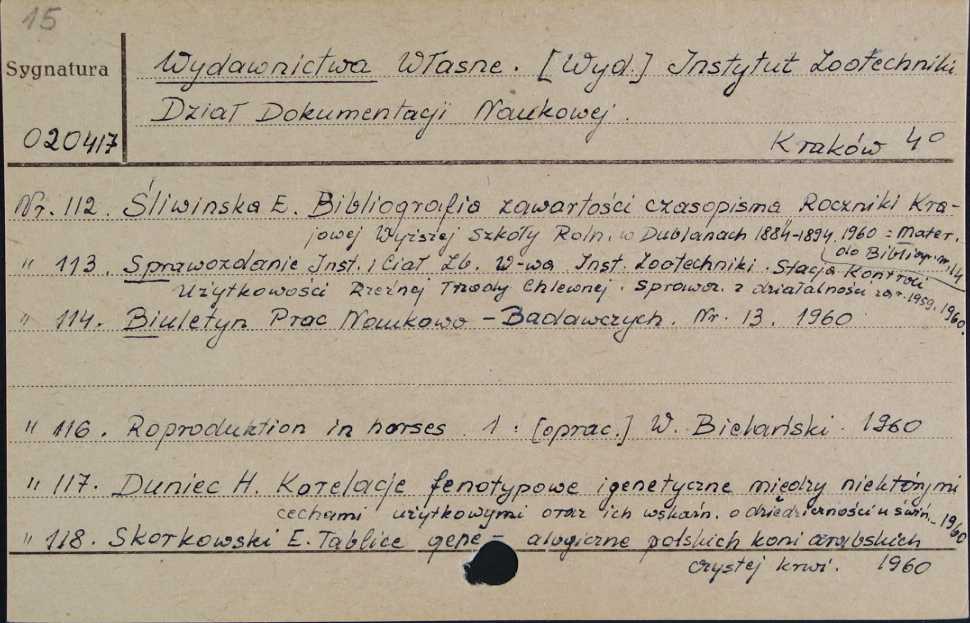 15
Sygnatura
020417
Wydawnictwa Własne. [Wyd.] Instytut Zootechniki
Dział Dokumentacji Naukowej.
Kraków 4°
Nr. 112. Śliwińska E. Bibliografia zawartości czasopisma Roczniki Kra-
jowej Wyższej Szkoły Roln. w Dublanach 1884-1894. 1960 = Mater.
do Bibliogr. nr 14
" 113. Sprawozdanie Inst. i Ciał Zb. W-wa Inst. Zootechniki. Stacja Kontroli
Użytkowości Rzeźnej Trzody Chlewnej. Sprawoz. z działalności za r. 1959. 1960.
" 114. Biuletyn Prac Naukowo - Badawczych. Nr. 13. 1960
" 116. Roproduktion in horses. 1: [oprac.] W. Bielański. 1960
" 117. Duniec H. Korelacje fenotypowe i genetyczne między niektórymi
cechami użytkowymi oraz ich wskaźn. odziedziczności u świń. - 1960
" 118. Skorkowski E. Tablice gene- alogiczne polskich koni arabskich
czystej krwi. 1960